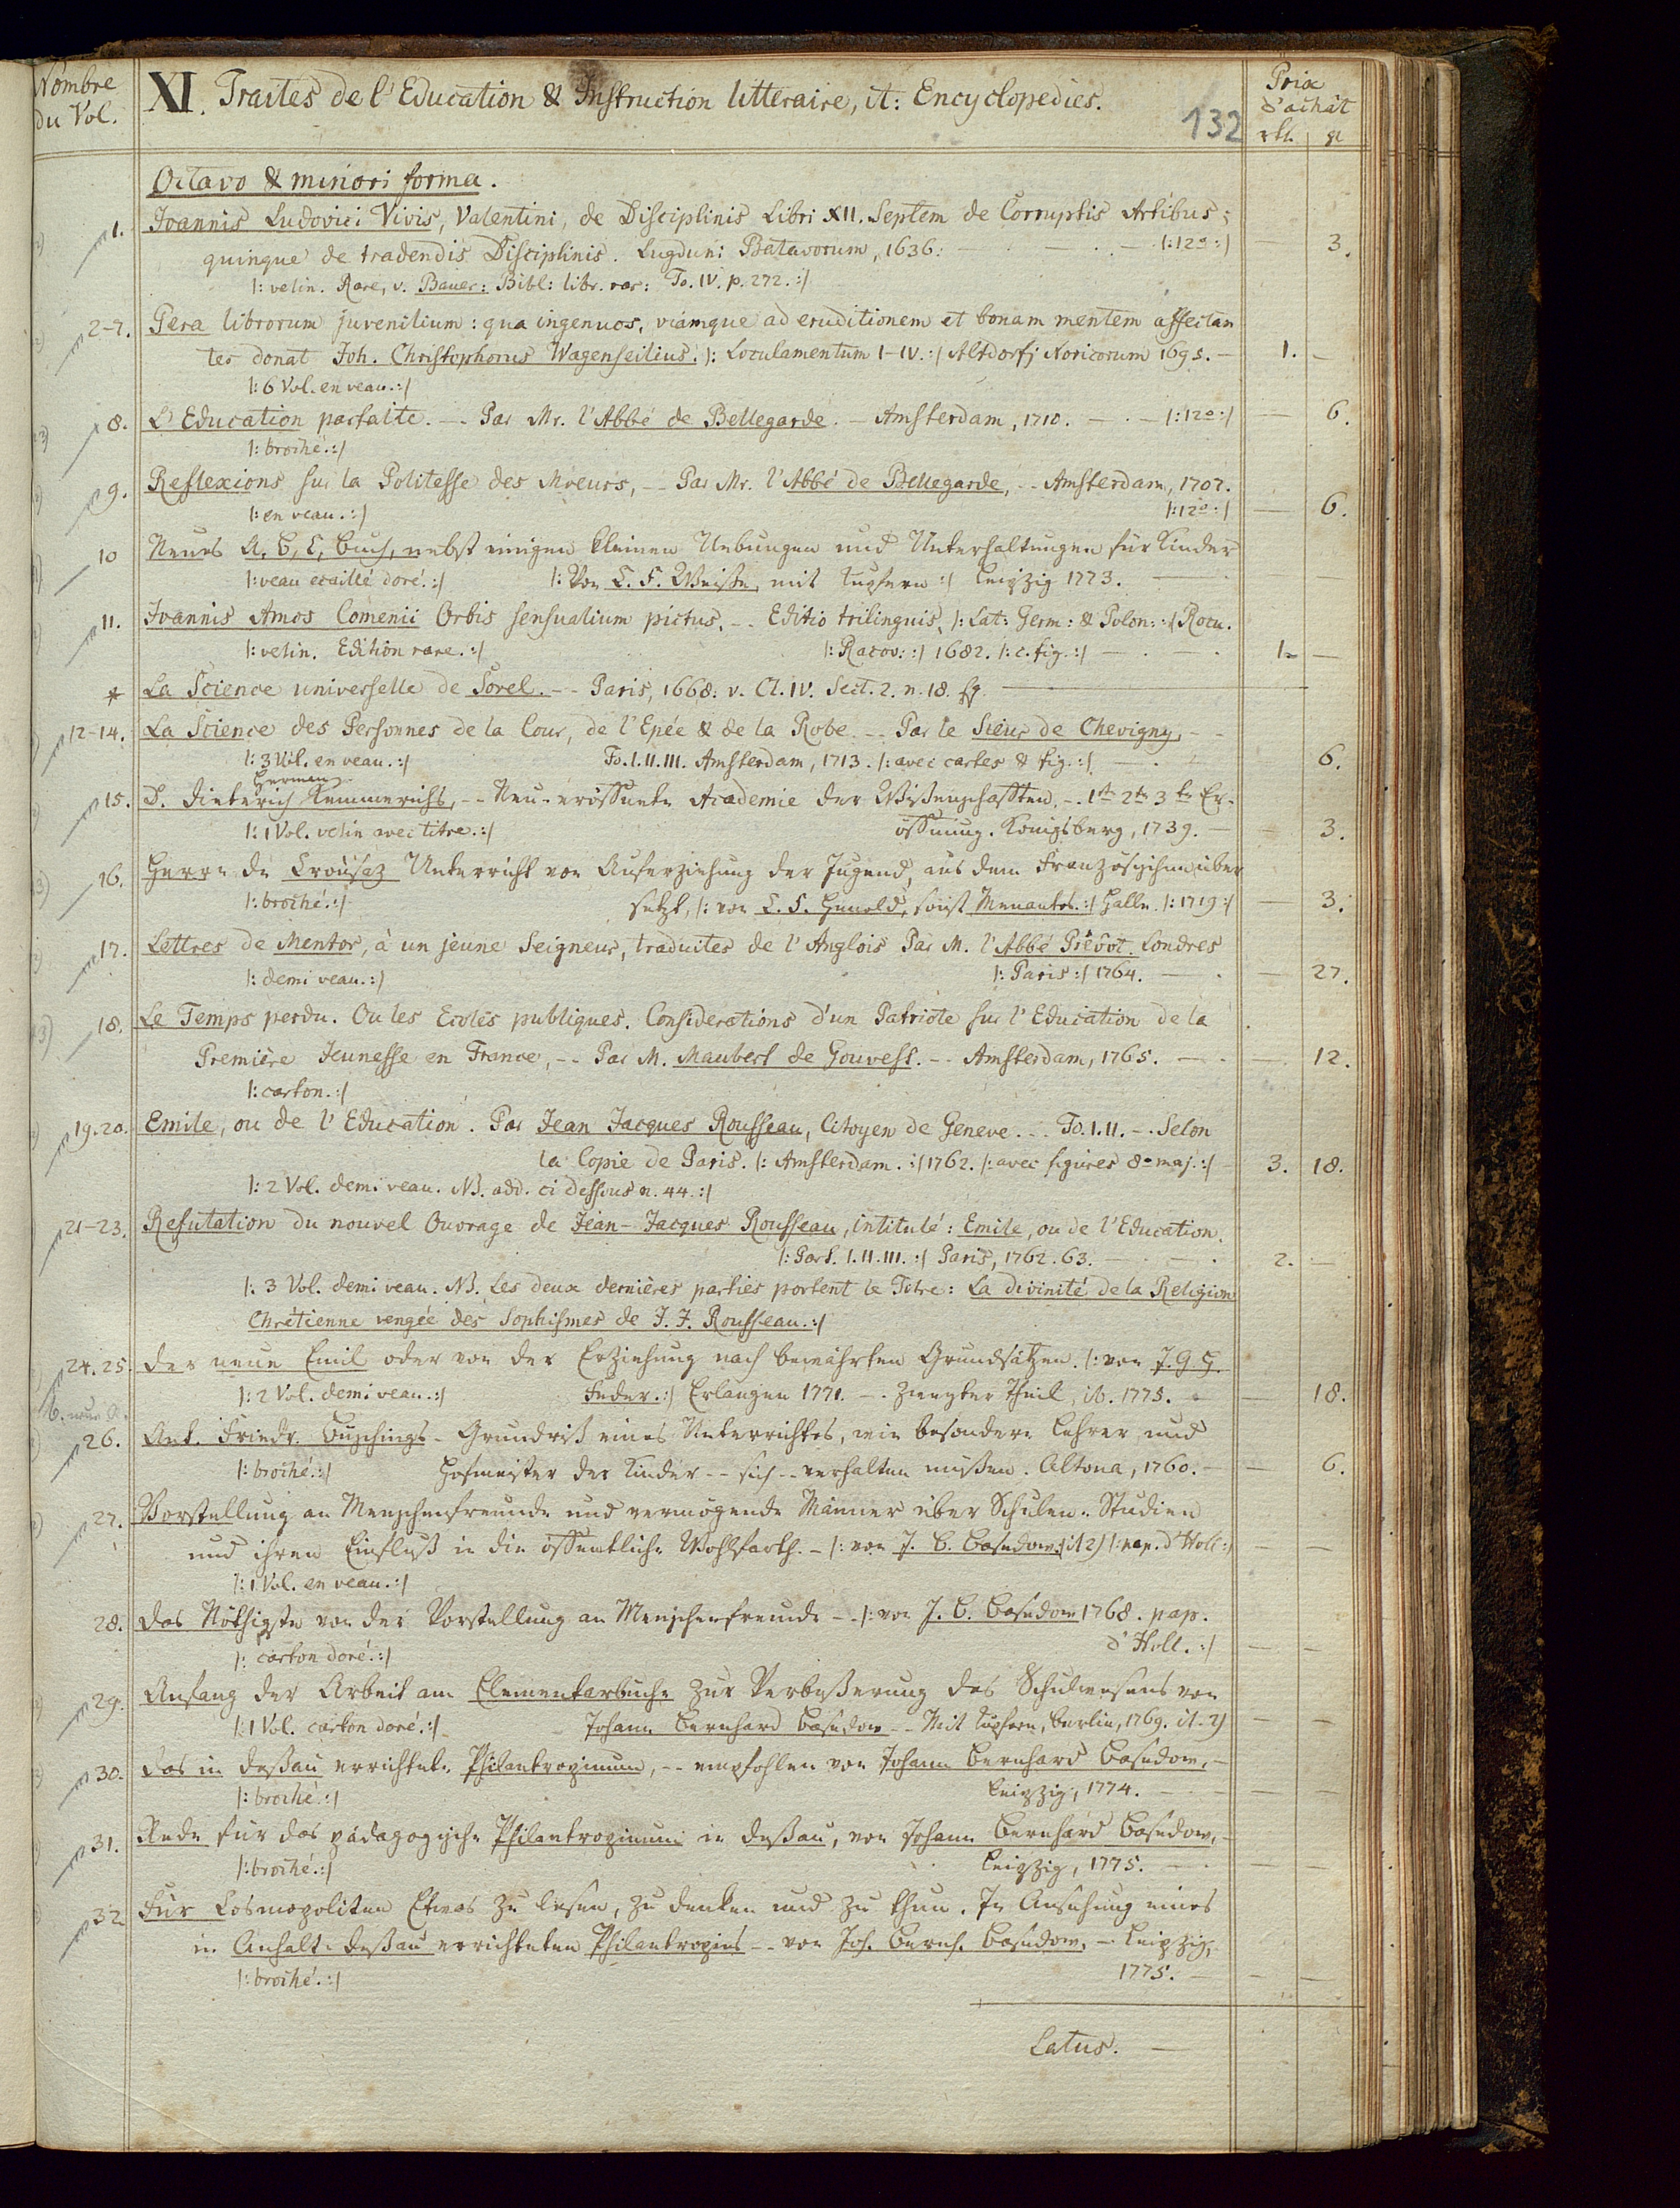 Nombre du Vol.
XI. Traites de l'Education & Instruction litteraire, it: Encyclopedies.
132
Prix d'achat
rtl. gr
Octavo & minori forma.
1. Joannis Ludovici Vivis, Valentini, de Disciplinis Libri XII. Septem de Corruptis Artibus;
quinque de tradendis Disciplinis. Lugduni Batavorum, 1636. — . — |: 12o :| 3.
|: velin. Rare, v. Bauer: Bibl: libr. rar: To. IV. p. 272. :|
2-7. Pera librorum juvenilium: qua ingenuos, viamque ad eruditionem et bonam mentem affectan
tes donat Joh. Christophorus Wagenseilius. |: Loculamentum I-IV. :| Altdorfj Noricorum 1695. — 1. —
|: 6 Vol. en veau. :|
8. L'Education parfaite. -- Par Mr. l'Abbé de Bellegarde. — Amsterdam, 1710. — . — |: 12o :| — 6.
|: broché. :|
9. Reflexions sur la Politesse des Moeurs, -- Par Mr. l'Abbé de Bellegarde, -- Amsterdam, 1707.
|: en veau. :| |: 12o :| — 6.
10 Neues A, B, C, Buch, nebst einigen kleinen Uebungen und Unterhaltungen für Kinder
|: veau ecaillé doré. :| |: Von C. F. Weiße, mit Kupfern :| Leipzig 1773. —
11. Joannis Amos Comenii Orbis sensualium pictus. -- Editio trilinguis, |: Lat: Germ: & Polon: :| Rocu.
|: velin. Edition rare. :| |: Racov: :| 1682. |: c. fig. :| — . — . 1. —
* La Science universelle de Sorel. -- Paris, 1668. v. Cl. IV. Sect. 2. n. 18. sq.
12-14. La Science des Personnes de la Cour, de l'Epée & de la Robe. -- Par le Sieur de Chevigny, --
|: 3 Vol. en veau. :| To. I. II. III. Amsterdam, 1713. |: avec cartes & fig. :| — . — 6.
15. D. Dieterich Herman Kemmerichs, -- Neu-eröffnete Academie der Wißenschafften. -- 1te 2te 3te Er-
|: 1 Vol. velin avec titre. :| öffnung. Königsberg, 1739. — — 3.
16. Herrn de Crousaz Unterricht von Auferziehung der Jugend, aus dem Französischen über
|: broché. :| setzt, |: von C. F. Hunold, sonst Menantes. :| Halle. |: 1719 :| — 3.
17. Lettres de Mentor, à un jeune Seigneur, traduites de l'Anglois Par M. l'Abbé Prêvôt. Londres
|: demi veau. :| |: Paris :| 1764. — . — 27.
18. Le Temps perdu. Ou les Ecoles publiques. Considerations d'un Patriote sur l'Education de la
Première Jeunesse en France, -- Par M. Maubert de Gouvest. -- Amsterdam, 1765. — . — 12.
|: carton. :|
19. 20. Emile, ou de l'Education. Par Jean Jacques Rousseau, Citoyen de Geneve. -- To. I. II. -- Selon
la Copie de Paris. |: Amsterdam. :| 1762. |: avec figures 8o maj. :| 3. 18.
|: 2 Vol. demi veau. NB. add. ci dessous n. 44. :|
21-23. Refutation du nouvel Ouvrage de Jean-Jacques Rousseau, intitulé: Emile, ou de l'Education.
|: Part. I. II. III. :| Paris, 1762. 63. — . — . 2. —
|: 3 Vol. demi veau. NB. Les deux dernières parties portent le Titre: La divinité de la Religion
Chrétienne vengée des Sophismes de J. J. Rousseau. :|
24. 25. Der neue Emil oder von der Erziehung nach bewährten Grundsätzen. |: von J. G. H.
|: 2 Vol. demi veau. :| Feder. :| Erlangen 1771. -- Zweyter Theil, ib. 1775. — 18.
26. Ant. Friedr. Büschings - Grundriß eines Unterrichtes, wie besondere Lehrer und
|: broché. :| Hofmeister der Kinder -- sich -- verhalten müßen. Altona, 1760. — — 6.
27. Vorstellung an Menschenfreunde und vermögende Männer über Schulen, Studien
und ihren Einfluß in die öffentliche Wohlfarth. - |: von J. B. Basedow. :| it 2) |: pap. d'Holl :| — —
|: 1 Vol. en veau. :|
28. Das Nöthigste von der Vorstellung an Menschenfreunde -- |: von J. B. Basedow 1768. pap.
|: carton doré. :| d'Holl. :| — —
29. Anfang der Arbeit am Elementarbuche zur Verbeßerung des Schulwesens von
|: 1 Vol. carton doré. :| Johann Bernhard Basedow -- Mit Kupfern, Berlin, 1769. it. 2) — —
30. Das in Deßau errichtete Philantropinum, -- empfohlen von Johann Bernhard Basedow, —
|: broché. :| Leipzig, 1774. — — —
31. Rede für das pädagogische Philantropinum in Deßau, von Johann Bernhard Basedow, —
|: broché. :| Leipzig, 1775. — . — —
32 Für Cosmopoliten Etwas zu lesen, zu denken und zu thun. In Ansehung eines
in Anhalt-Deßau errichteten Philantropins -- von Joh. Bernh. Basedow, -- Leipzig,
|: broché. :| 1775. — — —
Latus. —